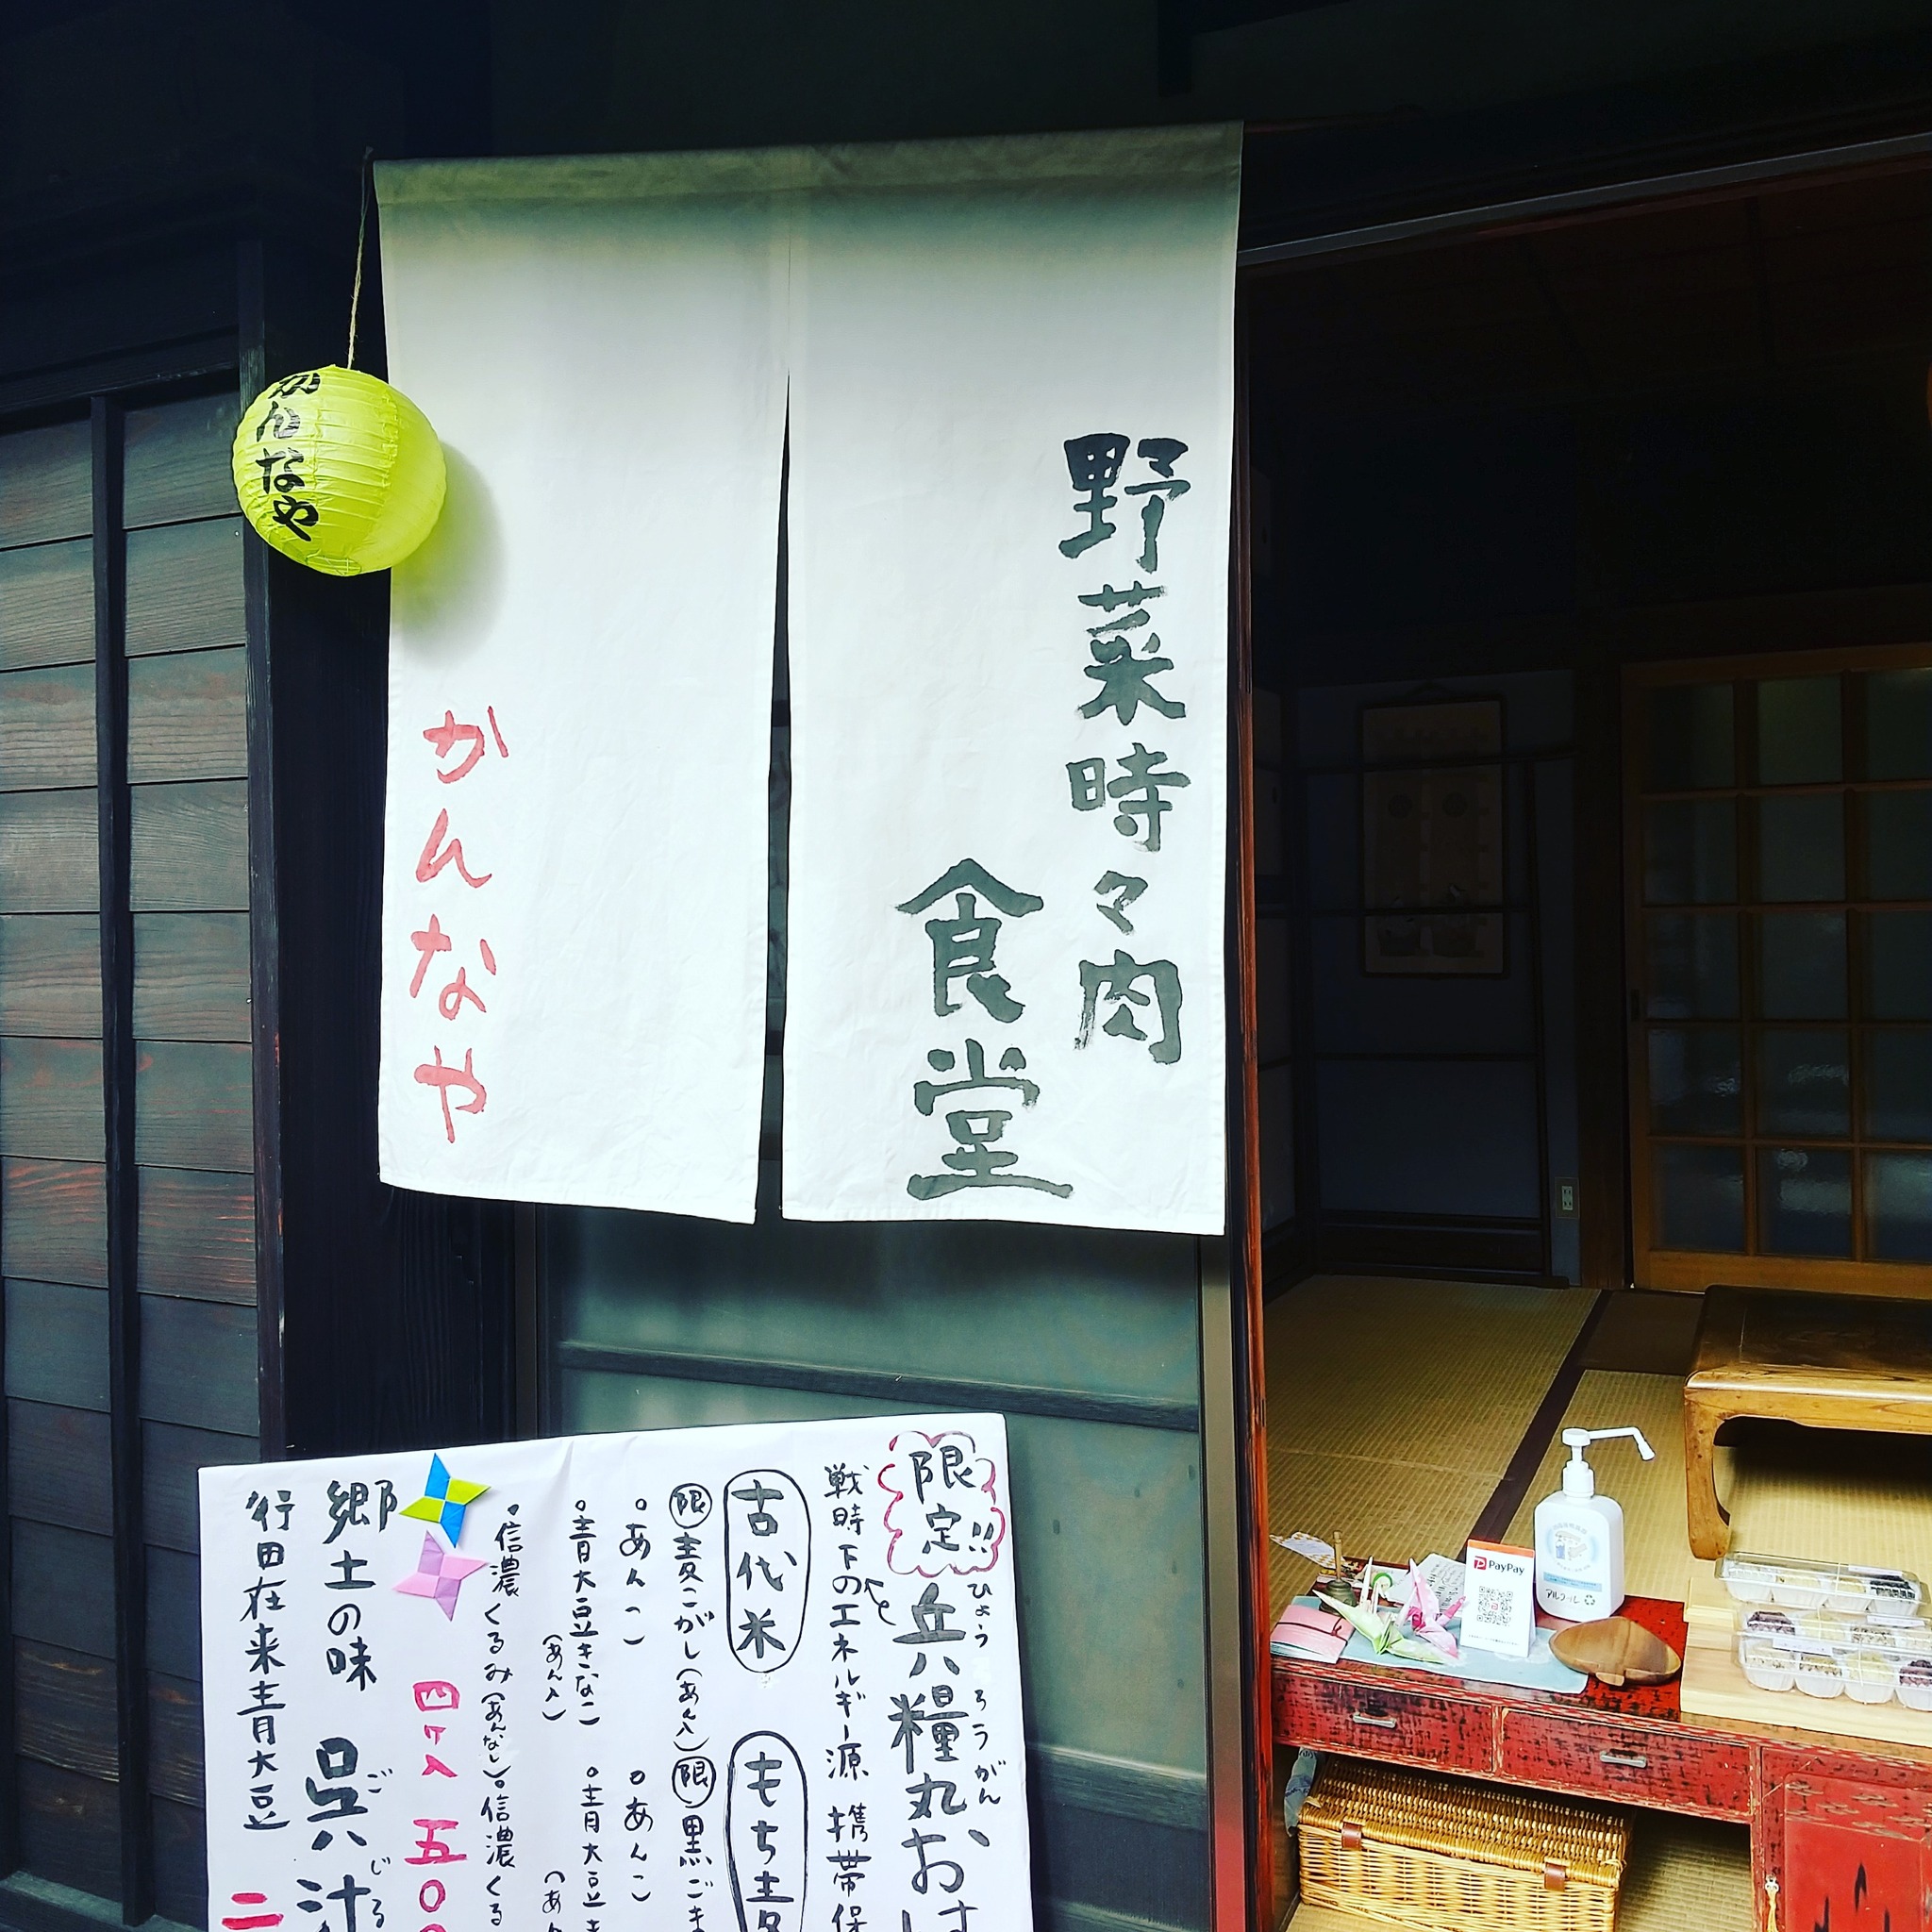 野菜時々肉
食堂
かんなや
かんなや
限定!!
兵糧丸おは
ひょうろうがん
戦時下のエネルギー源 携帯保
古代米
もち麦
限 麦こがし(あん入) 限 黒ごま
○あんこ ○あんこ
○青大豆きなこ ○青大豆き
(あん入) (あん
○信濃くるみ(あんなし) ○信濃くる
四ヶ入 五〇
郷土の味 呉汁
ごじる
行田在来青大豆
二
PayPay
アルコール